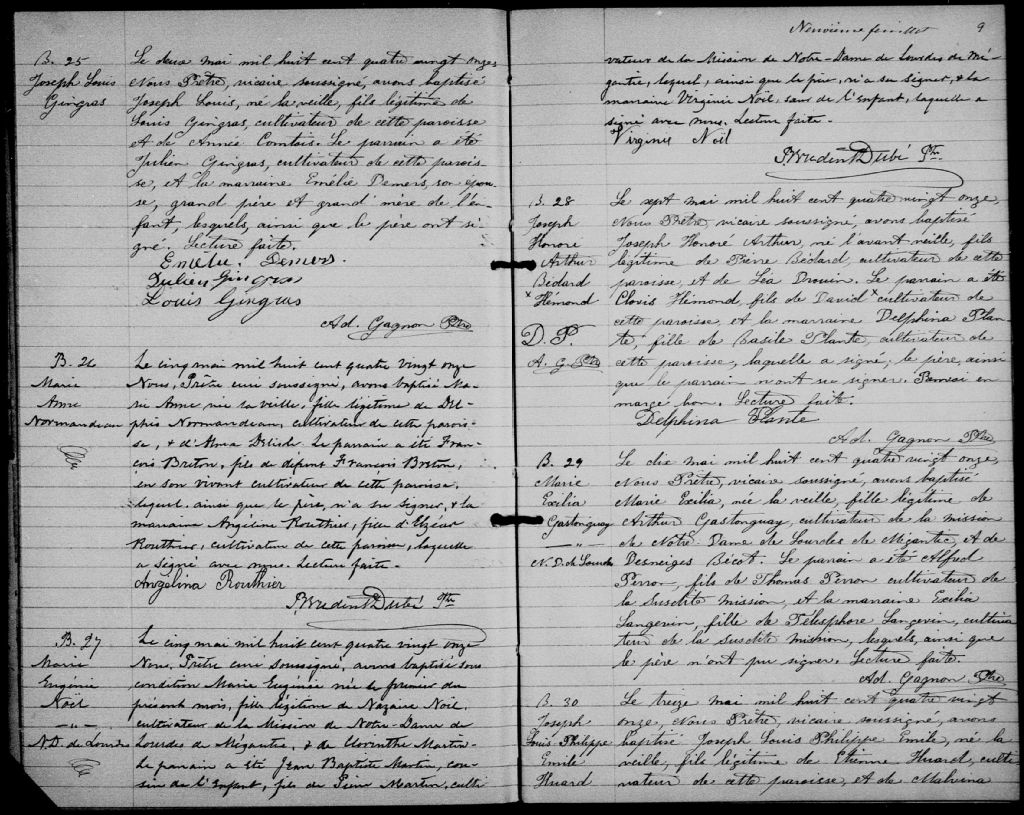 B. 25
Joseph Louis
Gingras
Le deux mai mil huit cent quatre vingt onze,
Nous Prêtre, vicaire soussigné, avons baptisé
Joseph Louis, né la veille, fils légitime de
Louis Gingras, cultivateur de cette paroisse
et de Année Comtois. Le parrain a été
Julien Gingras, cultivateur de cette parois-
se, et la marraine Emélie Demers, son épou-
se, grand père et grand'mère de l'en-
fant, lesquels, ainsi que le père ont si-
gné. Lecture faite.
Emelie Demers.
Julien Gingras
Louis Gingras
Ad. Gagnon Ptre
B. 26
Marie
Anne
Normandeau
Le cinq mai mil huit cent quatre vingt onze
Nous, Prêtre curé soussigné, avons baptisé Ma-
rie Anne née la veille, fille légitime de Del-
phis Normandeau, cultivateur de cette parois-
se, & d'Alma Delisle. Le parrain a été Fran-
cois Breton, fils de défunt Francois Breton,
en son vivant cultivateur de cette paroisse,
lequel, ainsi que le père, n'a su signer, & la
marraine Angéline Routhier, fille d'Elzéar
Routhier, cultivateur de cette paroisse, laquelle
a signé avec nous. Lecture faite.
Angelina Routhier
Prudent Dubé Ptre
B. 27
Marie
Eugénie
Noël
N.D. de Lourdes
Le cinq mai mil huit cent quatre vingt onze
Nous, Prêtre curé soussigné, avons baptisé sous
condition Marie Eugénie née le premier du
présent mois, fille légitime de Nazaire Noël,
cultivateur de la Mission de Notre-Dame de
Lourdes de Mégantic, & de Clorinthe Martin.
Le parrain a été Jean Baptiste Martin, cou-
sin de l'Enfant, fils de Pierre Martin, culti
Neuvième feuillet 9
vateur de la Mission de Notre-Dame de Lourdes de Mé-
gantic, lequel, ainsi que le père, n'a su signer, & la
marraine Virginie Noël, sœur de l'Enfant, laquelle a
signé avec nous. Lecture faite.
Virginie Noël
Prudent Dubé Ptre
B. 28
Joseph
Honoré
Arthur
Bédard
x Hémond
D. P.
A. G. Ptre
Le sept mai mil huit cent quatre vingt onze,
Nous Prêtre, vicaire soussigné, avons baptisé
Joseph Honoré Arthur, né l'avant veille, fils
légitime de Pierre Bédard, cultivateur de cette
paroisse, et de Léa Drouin. Le parrain a été
Clovis Hémond, fils de David x cultivateur de
cette paroisse, et la marraine Delphina Plan-
te, fille de Basile Plante, cultivateur de
cette paroisse, laquelle a signé; le père, ainsi
que le parrain n'ont su signer. Renvoi en
marge bon. Lecture faite.
Delphina Plante
Ad. Gagnon Ptre
B. 29
Marie
Exilia
Gastonguay
N. D. de Lourdes
Le dix mai mil huit cent quatre vingt onze,
Nous Prêtre, vicaire soussigné, avons baptisé
Marie Exilia, née la veille, fille légitime de
Arthur Gastonguay, cultivateur de la mission
de Notre Dame de Lourdes de Mégantic, et de
Desneiges Bécot. Le parrain a été Alfred
Perron, fils de Thomas Perron cultivateur de
la susdite mission, et la marraine Exilia
Langevin, fille de Télesphore Langevin, cultiva-
teur de la susdite mission, lesquels, ainsi que
le père n'ont pu signer. Lecture faite.
Ad. Gagnon Ptre
B. 30
Joseph
Louis Philippe
Emile
Huard
Le treize mai mil huit cent quatre vingt
onze, Nous Prêtre, vicaire soussigné, avons
baptisé Joseph Louis Philippe Emile, né la
veille, fils légitime de Etienne Huard, culti-
vateur de cette paroisse, et de Malvina